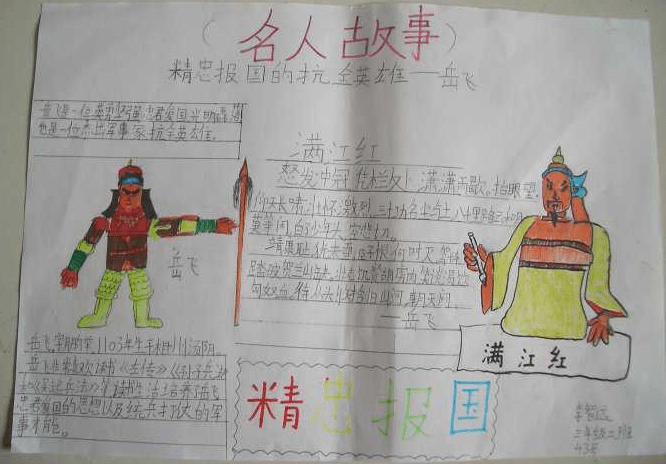 （名人故事）
精忠报国的抗金英雄——岳飞
岳飞是一位英勇坚强忠君爱国光明
也是一位杰出军事家抗金英雄。
满江红
怒发冲冠凭栏处、潇潇雨歇。抬眼望、
仰天长啸壮怀激烈三十功名尘与土八十里路云和月
莫等闲白了少年头空悲切。
靖康耻犹未雪臣子恨何时灭
踏破贺兰山缺壮志饥餐胡虏肉笑谈渴饮
匈奴血。待从头收拾旧山河朝天阙
——岳飞
岳飞
岳飞,1103年生于相州汤阴。
岳飞非常喜欢读《左传》《孙子兵法》
忠君爱国的思想以及练兵打仗的军
事才能。
满江红
精忠报国
三年级二班
43号